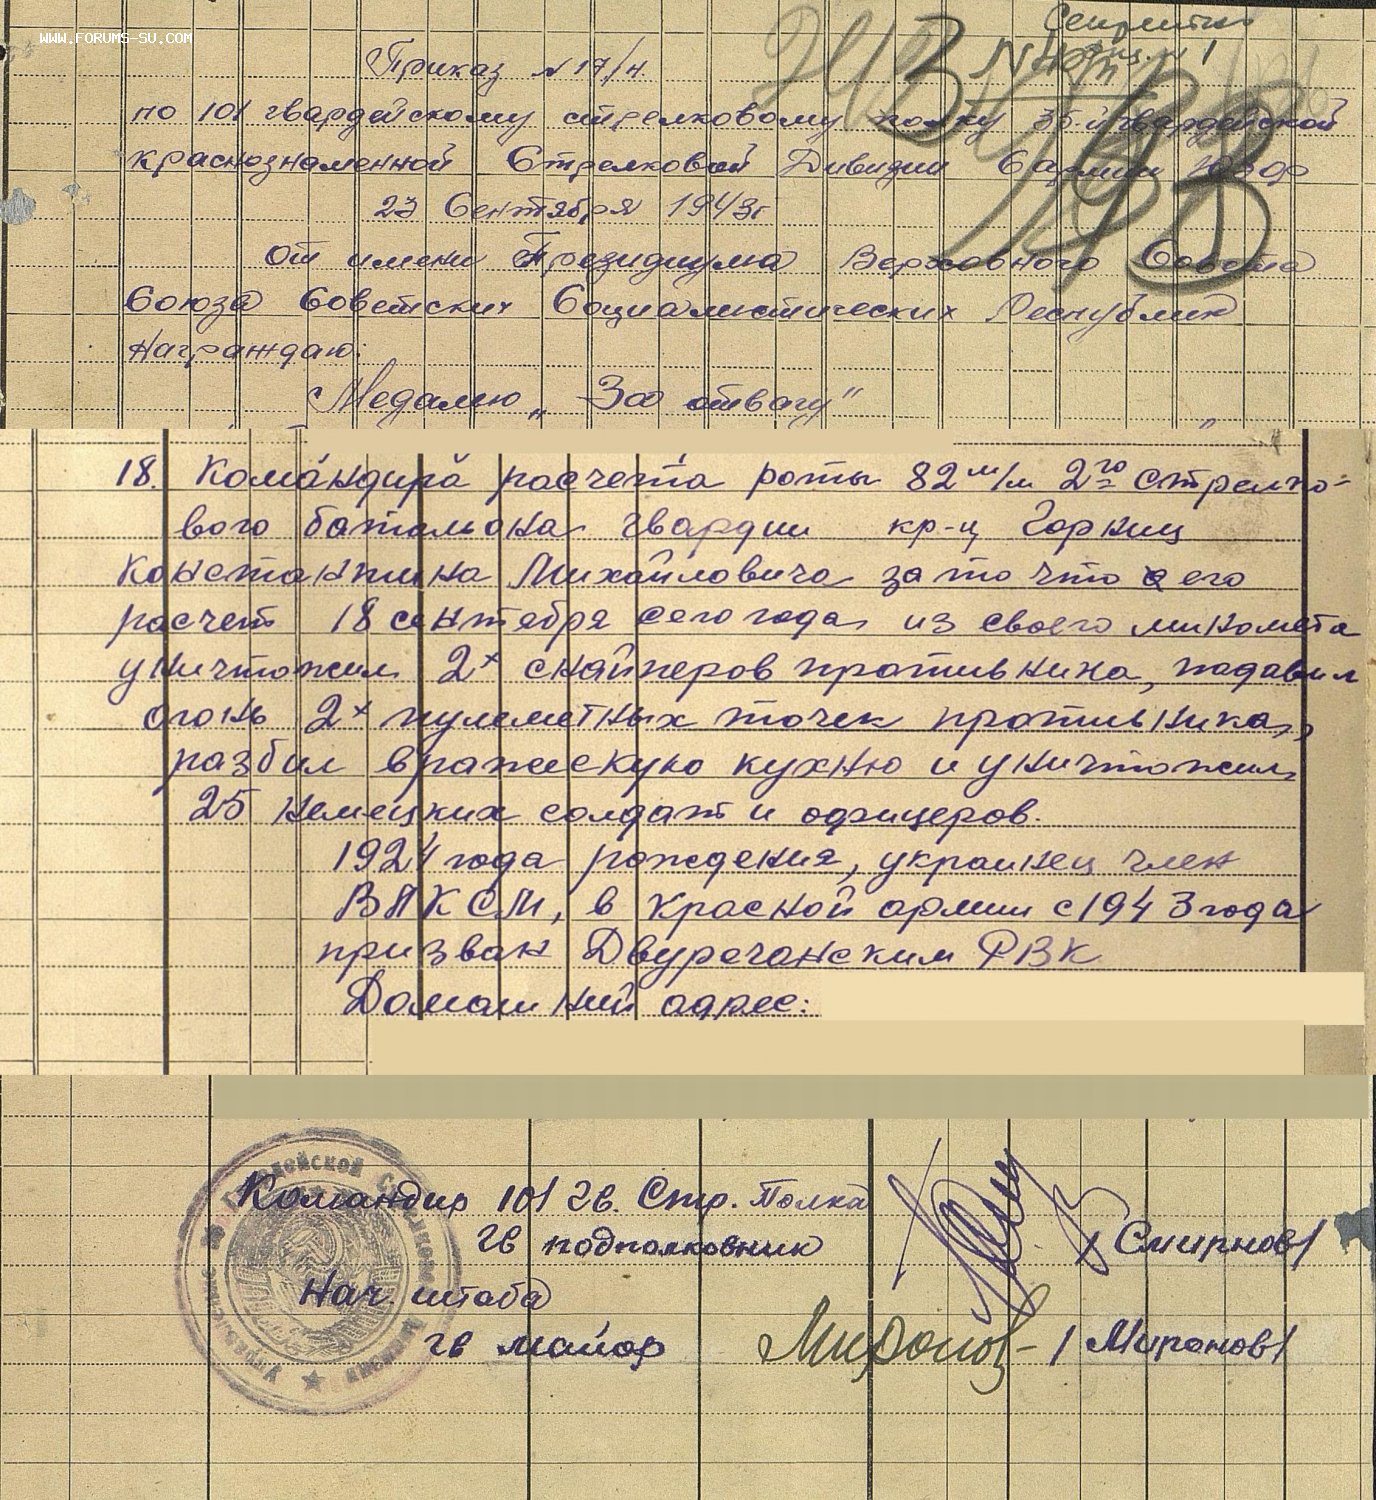 WWW.FORUMS-SU.COM
Секретно
Экз. N 1
Приказ N 17/н.
по 101 гвардейскому стрелковому полку 35-й гвардейской
краснознаменной Стрелковой Дивизии 6 армии ЮЗФ
23 Сентября 1943г
От имени Президиума Верховного Совета
Союза Советских Социалистических Республик
Награждаю:
Медалью „За отвагу"
18. Командира расчета роты 82 м/м 2го стрелко-
вого батальона гвардии кр-ц Горниц
Константина Михайловича за то что его
расчет 18 сентебря сего года из своего миномета
уничтожил 2х снайперов противника, подавил
огонь 2х пулеметных точек противника,
разбил вражескую кухню и уничтожил
25 немецких солдат и офицеров.
1924 года рождения, украинец член
ВЛКСМ, в Красной армии с 1943 года
призван Двуречанским РВК
Домашний адрес:
Командир 101 Гв. Стр. Полка
Гв подполковник /Смирнов/
Нач. штаба
Гв майор Миронов /Миронов/
Управление Гвардейской Стрелковой Дивизии